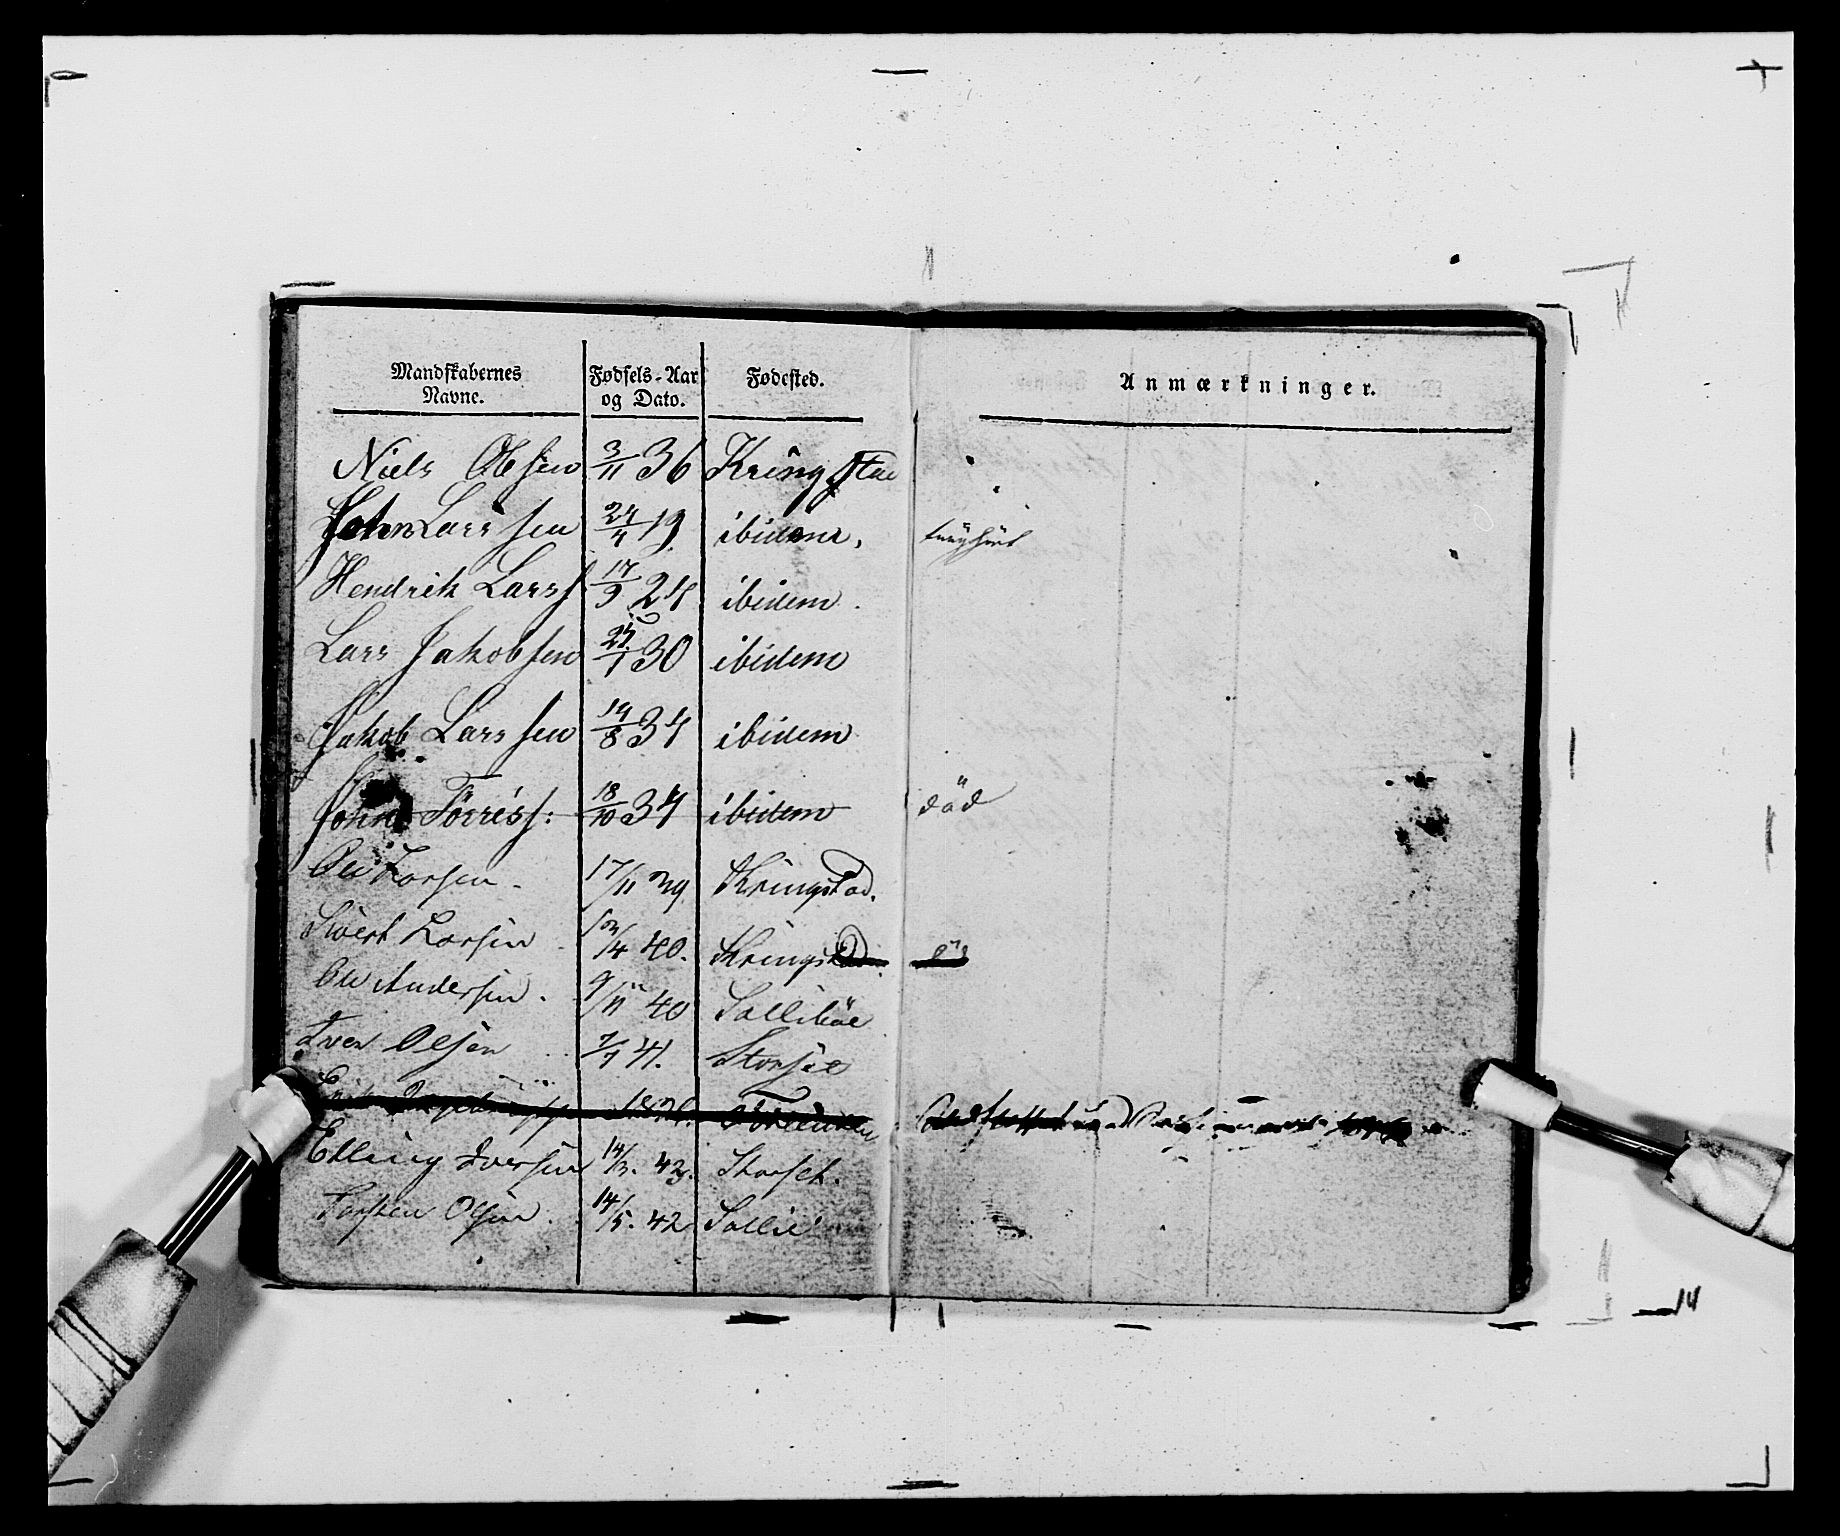 Mandskabernes Navne. Fødsels-Aar og Dato. Fødested. Anmærkninger.
Niels Olesen 3/11 36 Kringstad
John Larssen 24/4 19. ibidem.
Hendrik Larss 17/9 24 ibidem.
Lars Jakobsen 30 ibidem
Jakob Larssen 19/8 34 ibidem
John Törress: 18/10 34 ibidem död
Ole Larsen. 17/11 39. Kringstad.
Sivert Larsen /4 40. Kringstad.
Ole Andersen. 9/11 40 Sollibøe
Iver Olsen 7/7 41. Storset
Elling Iversen 14/3. 42. Storset.
Torsten Olsen. 14/5. 42 Sollie
14